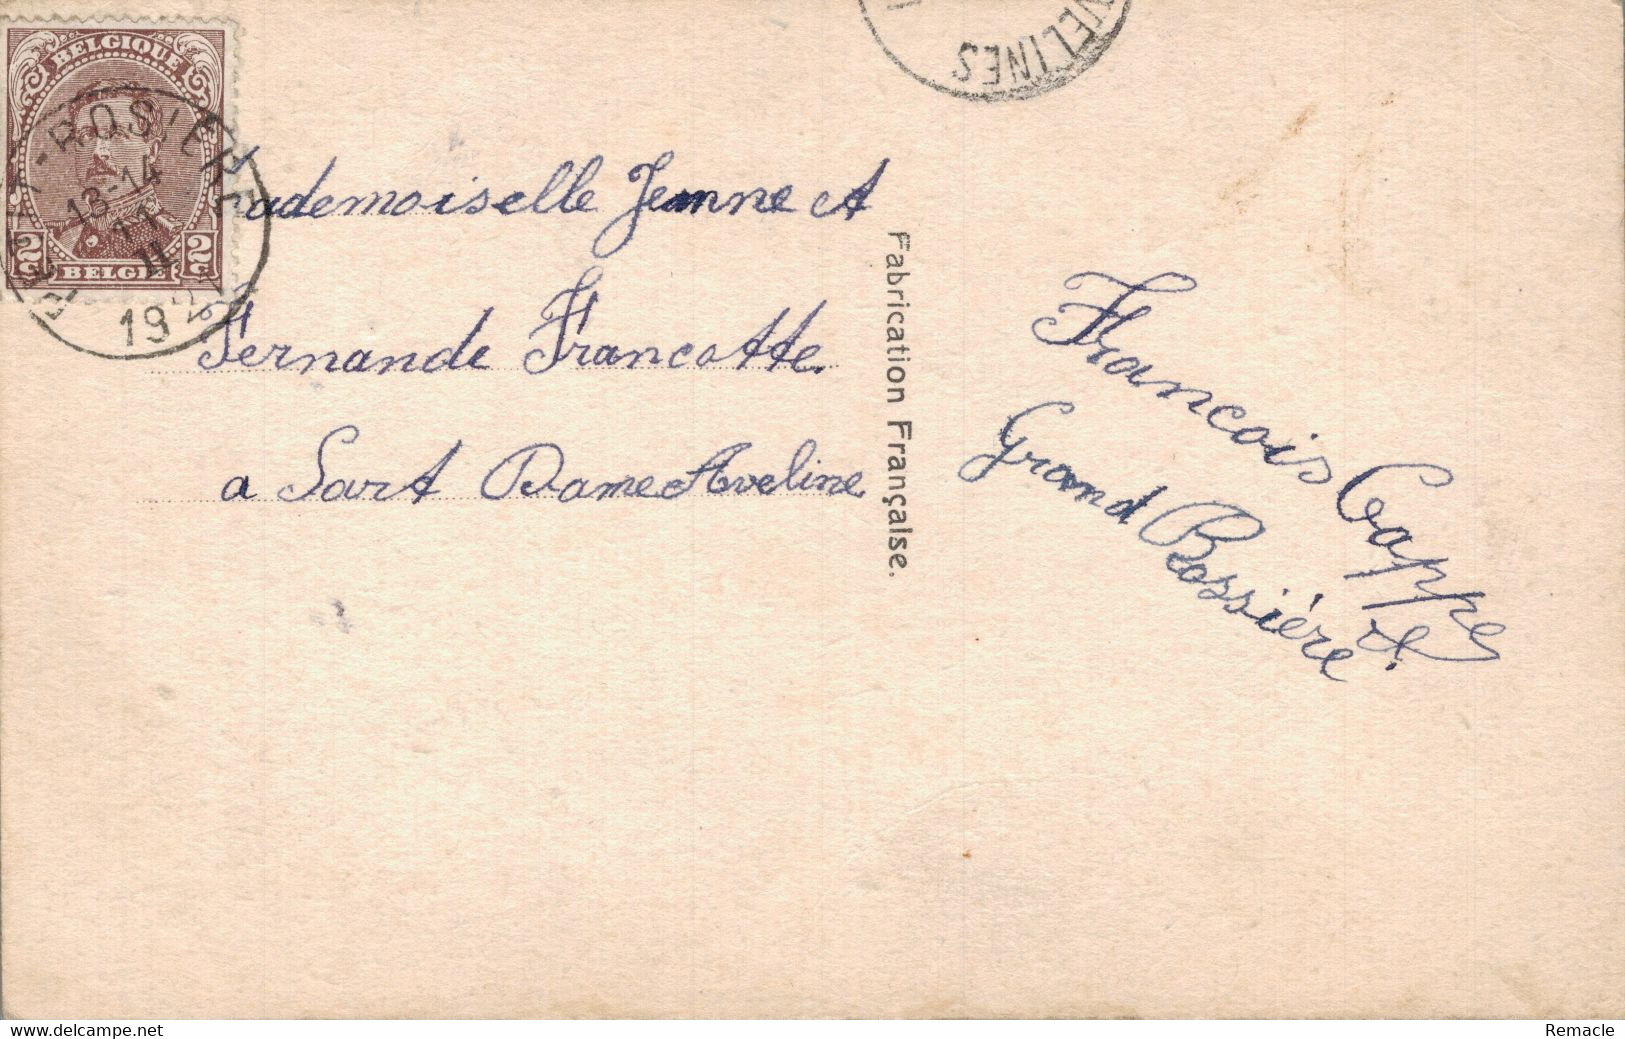 BELGIQUE
2 2
BELGIË
-ROSIERE
13-14
11
11
192
VELINES
Mademoiselle Jeanne et
Fernande Francotte
a Sart Dame Aveline
Fabrication Française.
Francois Coppe
Grand Rossiére
delcampe.net
Remacle